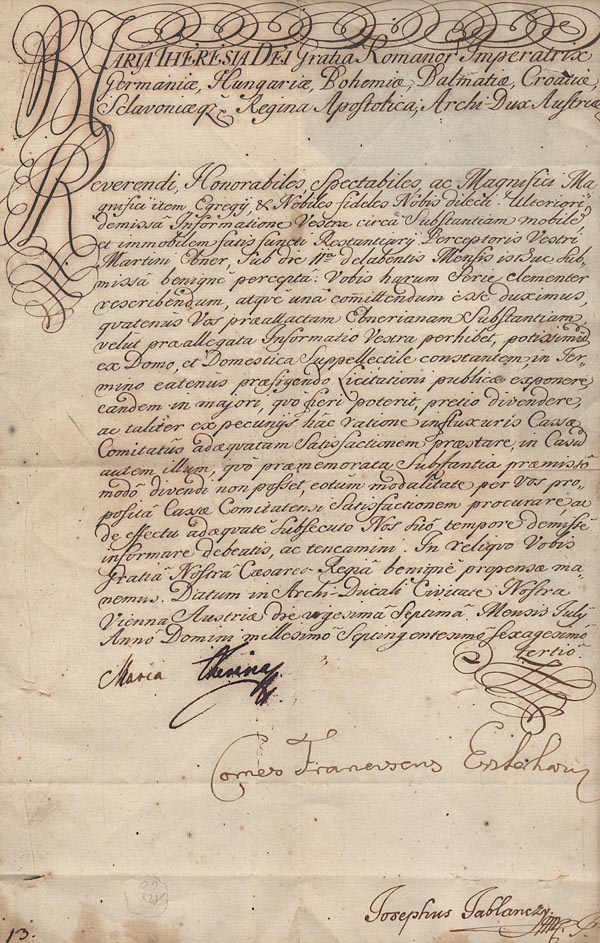 MARIA THERESIA DEI Gratia Romanor Imperatrix
Germaniæ, Hungariæ, Bohemiæ, Dalmatiæ, Croatiæ,
Sclavoniæq Regina Apostolica, Archi-Dux Austriæ
Reverendi, Honorabiles, Spectabiles, ac Magnifici Ma
gnifici item Egregij, & Nobiles fideles Nobis dilecti. Ulteriori
demissã Informatione Vestra circa Substantiam mobilẽ
et immobilem fatis functi Perceptoris Vestri
Martini Ebner, sub dre 11ma delabentis Mensis istuc sub
missã benignè perceptã: Vobis harum Serie clementer
rescribendum, atqve una comittendum esse duximus,
qvatenus Vos præattactam Ebnerianam Substantiam
velut præallegata Informatio Vestra perhibet, potissimũ
ex Domo, et Domestica Suppellectile constantem, in Ter
mino eatenus præfigendo Licitationi publicæ exponere
eandem in majori, qvo fieri poterit, pretio divendere,
ac taliter ex pecunijs hâc ratione influxuris Cassæ
Comitatus adæqvatam Satisfactionem præstare, in Casũ
autem illum, qvo præmemorata Substantia præmissõ
modõ divendi non posset, eotum modalitate per Vos pro
positâ Cassæ Comitatensi Satisfactionem procurare ac
de effectu adæqvatè subsecuto Nos suõ tempore demissè
informare debeatis, ac teneamini. In reliqvo Vobis
Gratiã Nostrã Cæsareo-Regiã benignè propensæ ma
nemus. Datum in Archi-Ducali Civitate Nostra
Vienna Austriæ dre vigesimâ Septimâ. Mensis July
Annõ Domini millesimõ Septingentesimõ sexagesimõ
tertiõ.
Maria Theresia
Comes Franciscus Esterhazy
Josephus Jablanczy
13.